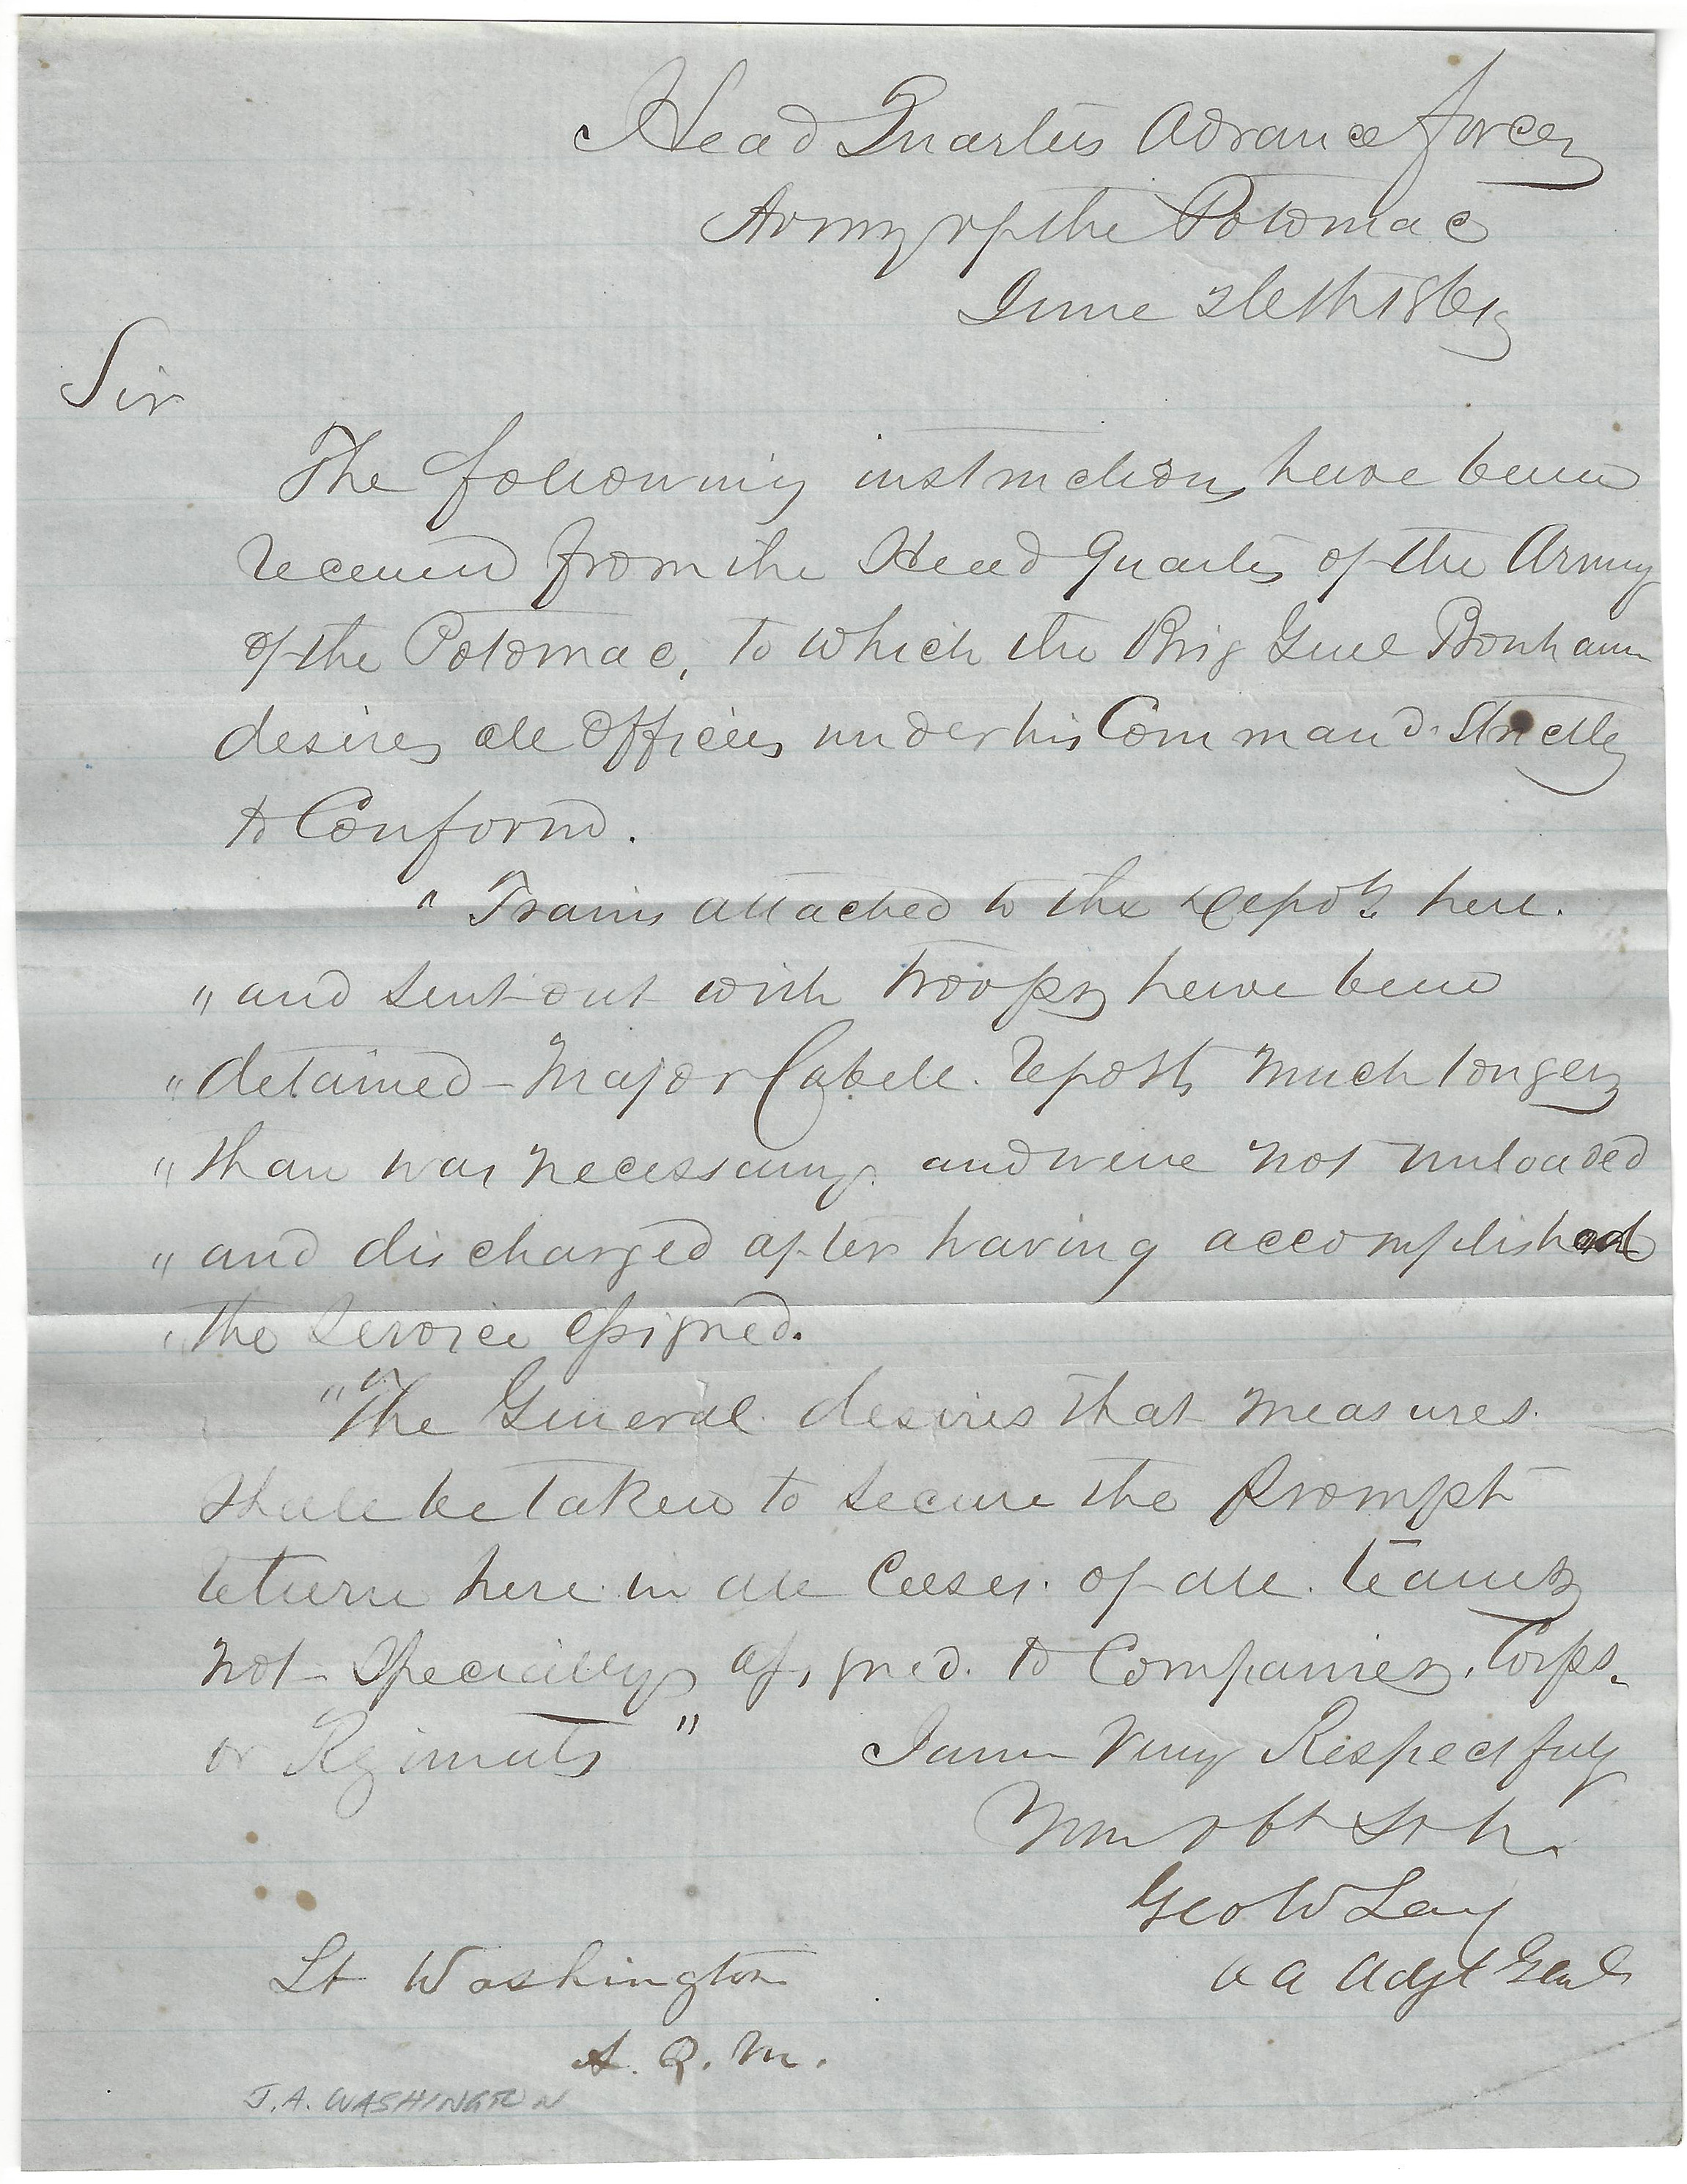 Head Quarters Advance forces
Army of the Potomac
June 26th 1861
Sir
The following instructions have been
received from the Head Quarters of the Army
of the Potomac, to which the Brig Genl Bonham
desires all officers under his Command. Strictly
to Conform.
" Trains attached to the Depots here.
" and sent out with troops have been
" detained - Major Cabell. reports much longer
" than was necessary. and were not unloaded
" and discharged after having accomplished
" the service assigned.
" The General desires that measures
shall be taken to secure the prompt
return here in all Cases. of all. teams
not specially assigned. to Companies, Corps.
or Regiments "
I am Very Respectfuly
Your obt Svt
Geo W Lay
A A Adjt Genl
Lt Washington
A. Q. M.
J. A. WASHINGTON